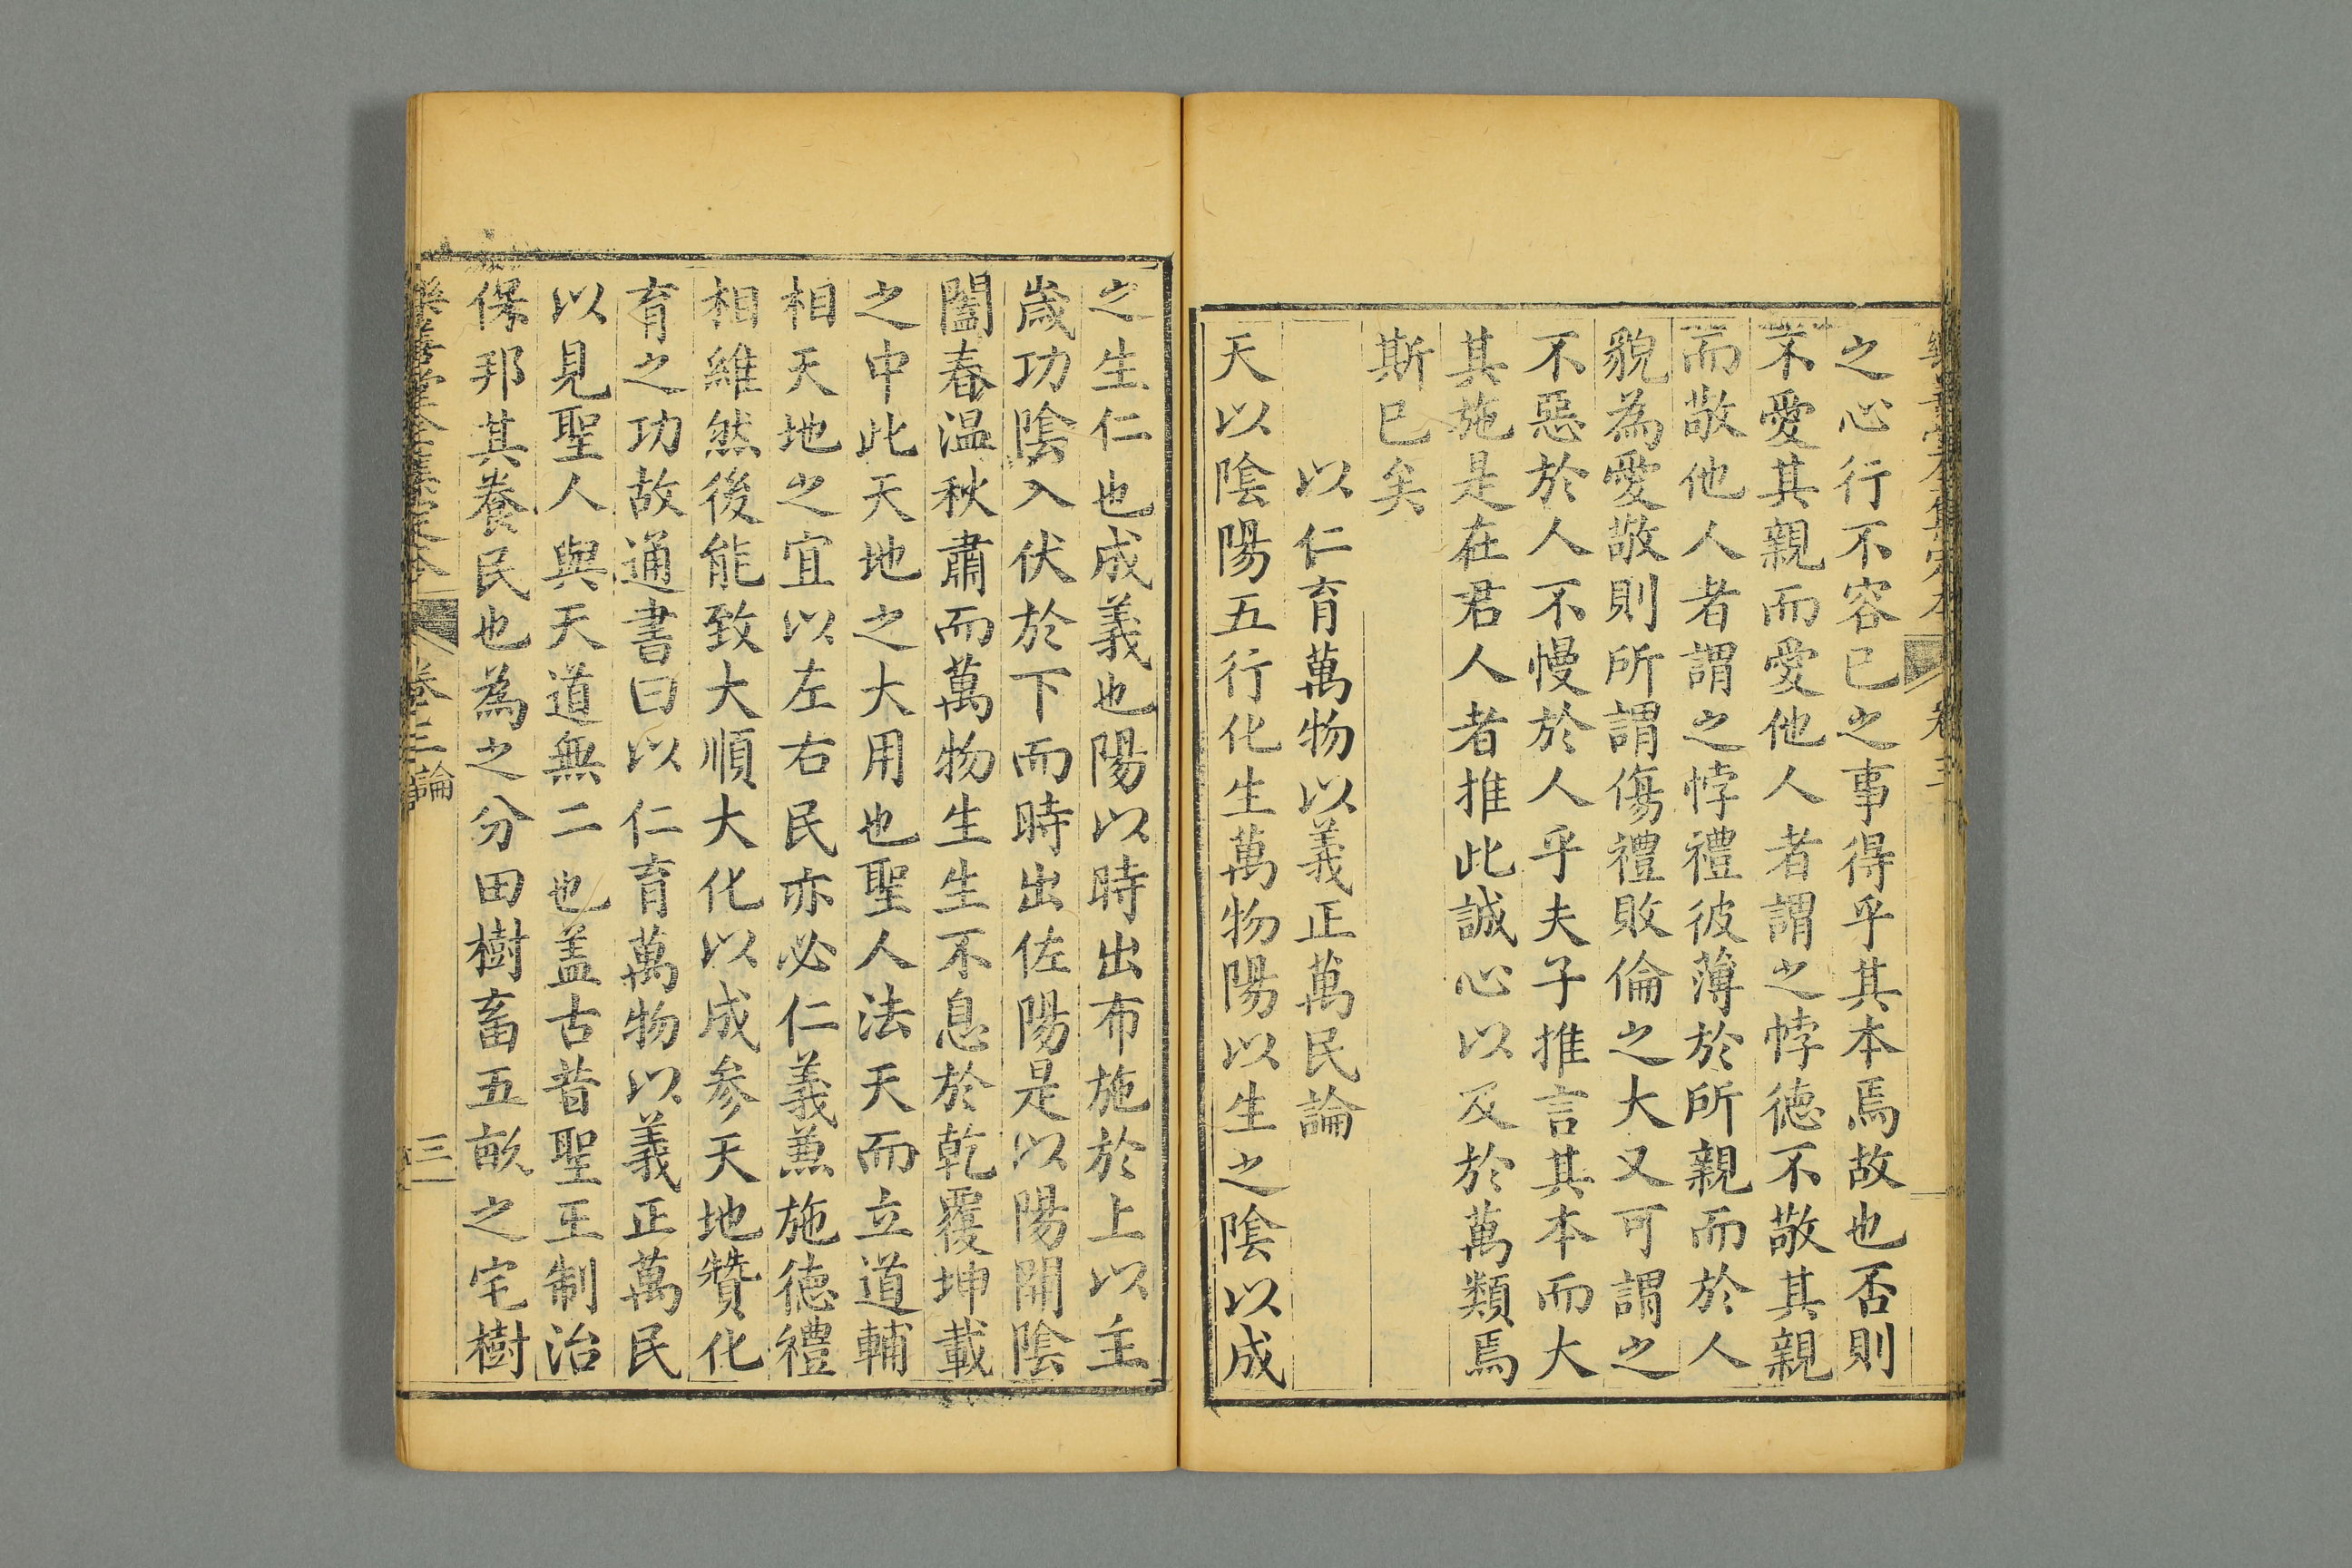 之心行不容已之事得乎其本焉故也否則
不愛其親而愛他人者謂之悖德不敬其親
而敬他人者謂之悖禮彼薄於所親而於人
貌為愛敬則所謂傷禮敗倫之大又可謂之
不惡於人不慢於人乎夫子推言其本而大
其施是在君人者推此誠心以及於萬類焉
斯已矣
以仁育萬物以義正萬民論
天以陰陽五行化生萬物陽以生之陰以成
之生仁也成義也陽以時出布施於上以主
歲功陰入伏於下而時出佐陽是以陽開陰
闔春温秋肅而萬物生生不息於乾覆坤載
之中此天地之大用也聖人法天而立道輔
相天地之宜以左右民亦必仁義兼施德禮
相維然後能致大順大化以成参天地贊化
育之功故通書曰以仁育萬物以義正萬民
以見聖人與天道無二也盖古昔聖王制治
保邦其養民也為之分田樹畜五畝之宅樹
樂善堂全集定本
卷三 論
三